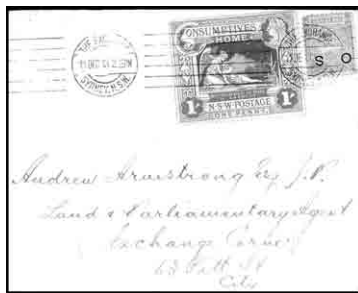 THE EXC
11 DEC 01 2 15PM
SYDNEY. N.S.W.
CONSUMPTIVES
HOME
1s 1s
N·S·W·POSTAGE
ONE PENNY
S O
Andrew Armstrong Esq J.P.
Land & Parliamentary Agent
Exchange Corner
63 Pitt St
City